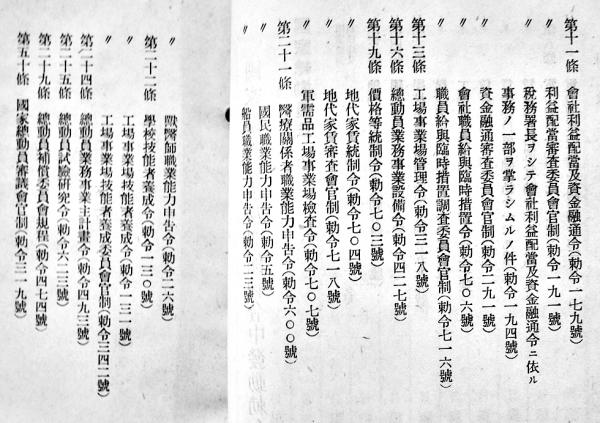 第十一條 會社利益配當及資金融通令(勅令一七九號)
〃 利益配當審査委員會官制(勅令一九一號)
〃 稅務署長ヲシテ會社利益配當及資金融通令ニ依ル
事務ノ一部ヲ掌ラシムルノ件(勅令一九四號)
〃 資金融通審査委員會官制(勅令二九一號)
〃 會社職員給與臨時措置令(勅令七〇六號)
〃 職員給與臨時措置調査委員會官制(勅令七一六號)
第十三條 工場事業場管理令(勅令三一八號)
第十六條 總動員業務事業設備令(勅令四二七號)
第十九條 價格等統制令(勅令七〇三號)
〃 地代家賃統制令(勅令七〇四號)
〃 地代家賃審査會官制(勅令七一八號)
〃 軍需品工場事業場檢査令(勅令七〇七號)
第二十一條 醫療關係者職業能力申告令(勅令六〇〇號)
〃 國民職業能力申告令(勅令五號)
〃 船員職業能力申告令(勅令二三號)
〃 獸醫師職業能力申告令(勅令二六號)
第二十二條 學校技能者養成令(勅令一三〇號)
〃 工場事業場技能者養成令(勅令一三一號)
〃 工場事業場技能者養成委員會官制(勅令三四二號)
第二十四條 總動員業務事業主計畫令(勅令四九三號)
第二十五條 總動員試驗硏究令(勅令六二三號)
第二十九條 總動員補償委員會規程(勅令四七四號)
第五十條 國家總動員審議會官制(勅令三一九號)